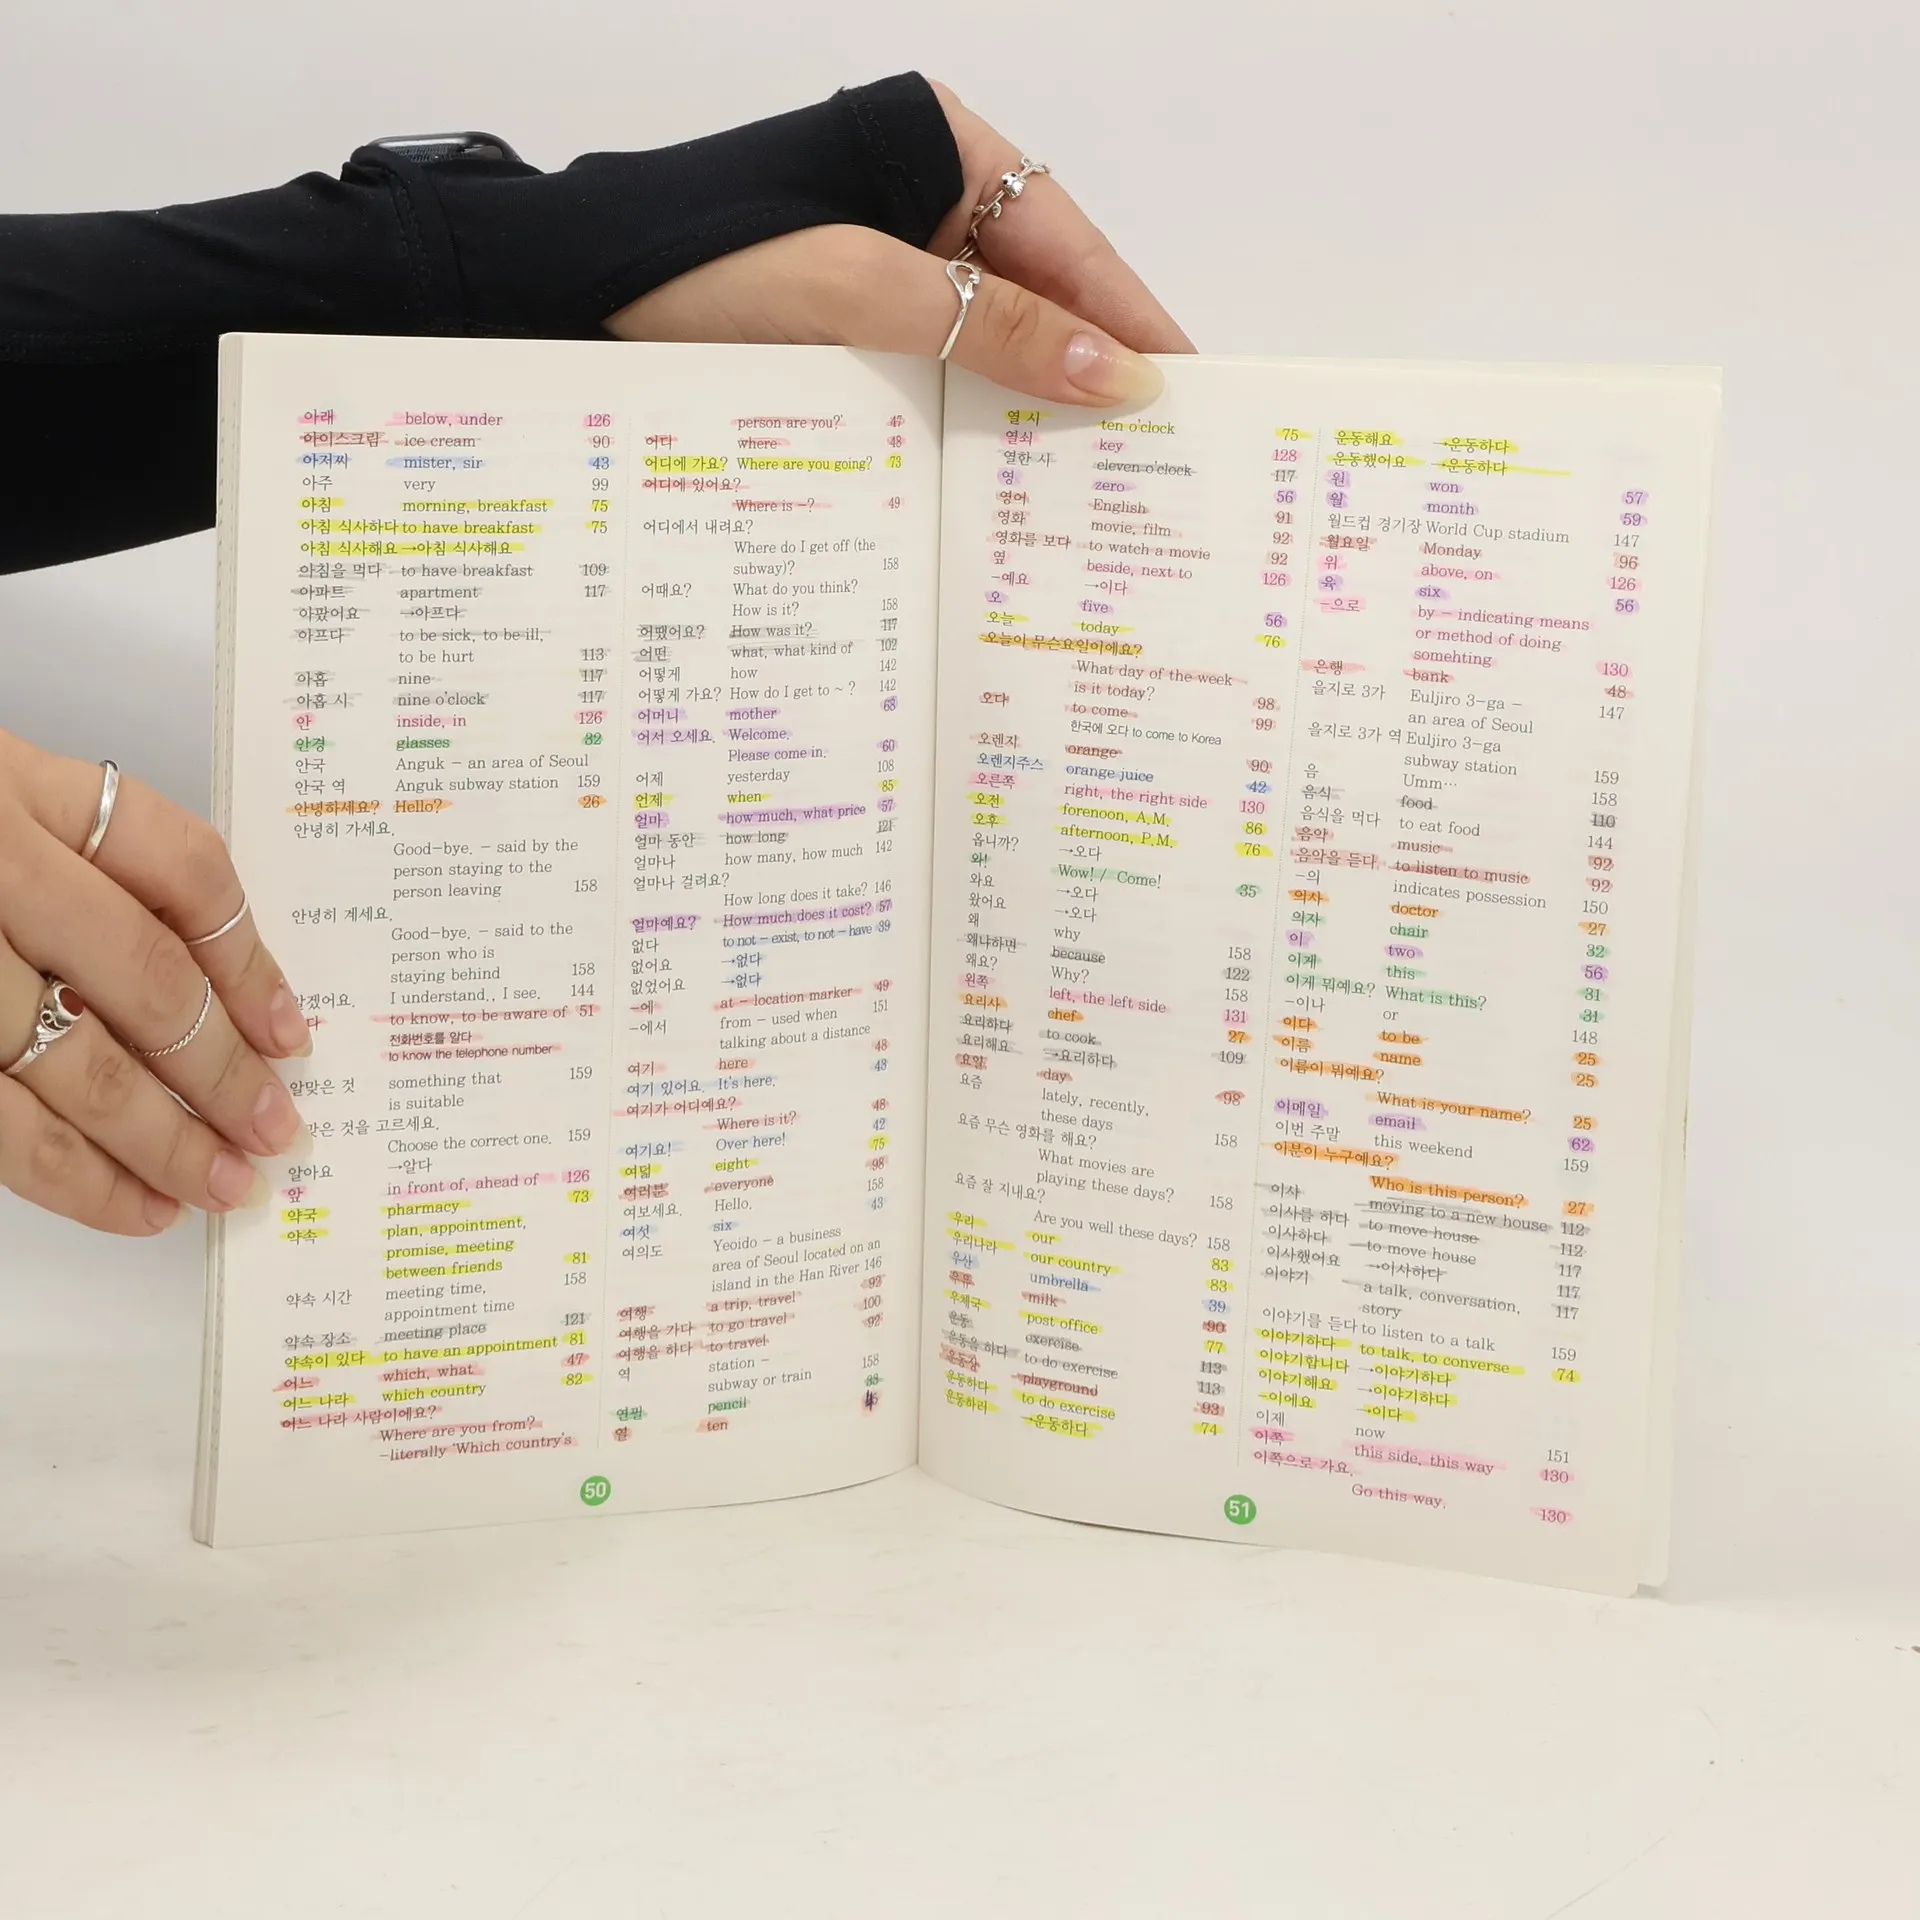 아래 below, under 126
아이스크림 ice cream 90
아저씨 mister, sir 43
아주 very 99
아침 morning, breakfast 75
아침 식사하다 to have breakfast 75
아침 식사해요 →아침 식사해요
아침을 먹다 to have breakfast 109
아파트 apartment 117
아팠어요 →아프다
아프다 to be sick, to be ill,
to be hurt 113
아홉 nine 117
아홉 시 nine o'clock 117
안 inside, in 126
안경 glasses 32
안국 Anguk - an area of Seoul
안국 역 Anguk subway station 159
안녕하세요? Hello? 26
안녕히 가세요.
Good-bye. - said by the
person staying to the
person leaving 158
안녕히 계세요.
Good-bye. - said to the
person who is
staying behind 158
알겠어요. I understand., I see. 144
다 to know, to be aware of 51
전화번호를 알다
to know the telephone number
알맞은 것 something that 159
is suitable
맞은 것을 고르세요.
Choose the correct one. 159
알아요 →알다
앞 in front of, ahead of 126
약국 pharmacy 73
약속 plan, appointment,
promise, meeting
between friends 81
약속 시간 meeting time, 158
appointment time
약속 장소 meeting place 121
약속이 있다 to have an appointment 81
어느 which, what 47
어느 나라 which country 82
어느 나라 사람이에요?
Where are you from?
-literally 'Which country's
person are you?' 47
어디 where 48
어디에 가요? Where are you going? 73
어디에 있어요?
Where is -? 49
어디에서 내려요?
Where do I get off (the
subway)? 158
어때요? What do you think?
How is it? 158
어땠어요? How was it? 117
어떤 what, what kind of 102
어떻게 how 142
어떻게 가요? How do I get to ~ ? 142
어머니 mother 63
어서 오세요. Welcome.
Please come in. 60
어제 yesterday 108
언제 when 85
얼마 how much, what price 57
얼마 동안 how long 121
얼마나 how many, how much 142
얼마나 걸려요?
How long does it take? 146
얼마예요? How much does it cost? 57
없다 to not - exist, to not - have 39
없어요 →없다
없었어요 →없다
-에 at - location marker 49
-에서 from - used when 151
talking about a distance
여기 here 48
여기 있어요. It's here. 43
여기가 어디예요?
Where is it? 48
여기요! Over here! 42
여덟 eight 75
여러분 everyone 98
여보세요. Hello. 158
여섯 six 43
여의도 Yeoido - a business
area of Seoul located on an
island in the Han River 146
여행 a trip, travel 92
여행을 가다 to go travel 100
여행을 하다 to travel 92
역 station -
subway or train 158
연필 pencil 33
열 ten
50
열 시 ten o'clock 75
열쇠 key 128
열한 시 eleven o'clock 117
영 zero 56
영어 English 91
영화 movie, film 92
영화를 보다 to watch a movie 92
옆 beside, next to 126
-예요 →이다
오 five 56
오늘 today 76
오늘이 무슨요일이에요?
What day of the week
is it today? 98
오다 to come 99
한국에 오다 to come to Korea
오렌지 orange 90
오렌지주스 orange juice 42
오른쪽 right, the right side 130
오전 forenoon, A.M. 86
오후 afternoon, P.M. 76
옵니까? →오다
와! Wow! / Come! 35
와요 →오다
왔어요 →오다
왜 why
왜냐하면 because 158
왜요? Why? 122
왼쪽 left, the left side 158
요리사 chef 131
요리하다 to cook 27
요리해요 →요리하다 109
요일 day
요즘 lately, recently, 98
these days
요즘 무슨 영화를 해요? 158
What movies are
playing these days?
요즘 잘 지내요? 158
Are you well these days? 158
우리 our 83
우리나라 our country 83
우산 umbrella 39
우유 milk 90
우체국 post office 77
운동 exercise 113
운동을 하다 to do exercise 113
운동장 playground 93
운동하다 to do exercise 74
운동하러 →운동하다
운동해요 →운동하다
운동했어요 →운동하다
원 won 57
월 month 59
월드컵 경기장 World Cup stadium 147
월요일 Monday 96
위 above, on 126
육 six 56
-으로 by - indicating means
or method of doing
somehting 130
은행 bank 48
을지로 3가 Euljiro 3-ga - 147
an area of Seoul
을지로 3가 역 Euljiro 3-ga
subway station 159
음 Umm… 158
음식 food 110
음식을 먹다 to eat food 144
음악 music 92
음악을 듣다. to listen to music 92
-의 indicates possession 150
의사 doctor 27
의자 chair 32
이 two 56
이게 this 31
이게 뭐예요? What is this? 31
-이나 or 148
이다 to be 25
이름 name 25
이름이 뭐예요?
What is your name? 25
이메일 email 62
이번 주말 this weekend 159
이분이 누구예요?
Who is this person? 27
이사 moving to a new house 112
이사를 하다 to move house 112
이사하다 to move house 117
이사했어요 →이사하다 117
이야기 a talk, conversation, 117
story
이야기를 듣다 to listen to a talk 159
이야기하다 to talk, to converse 74
이야기합니다 →이야기하다
이야기해요 →이야기하다
-이에요 →이다
이제 now 151
이쪽 this side, this way 130
이쪽으로 가요.
Go this way. 130
51